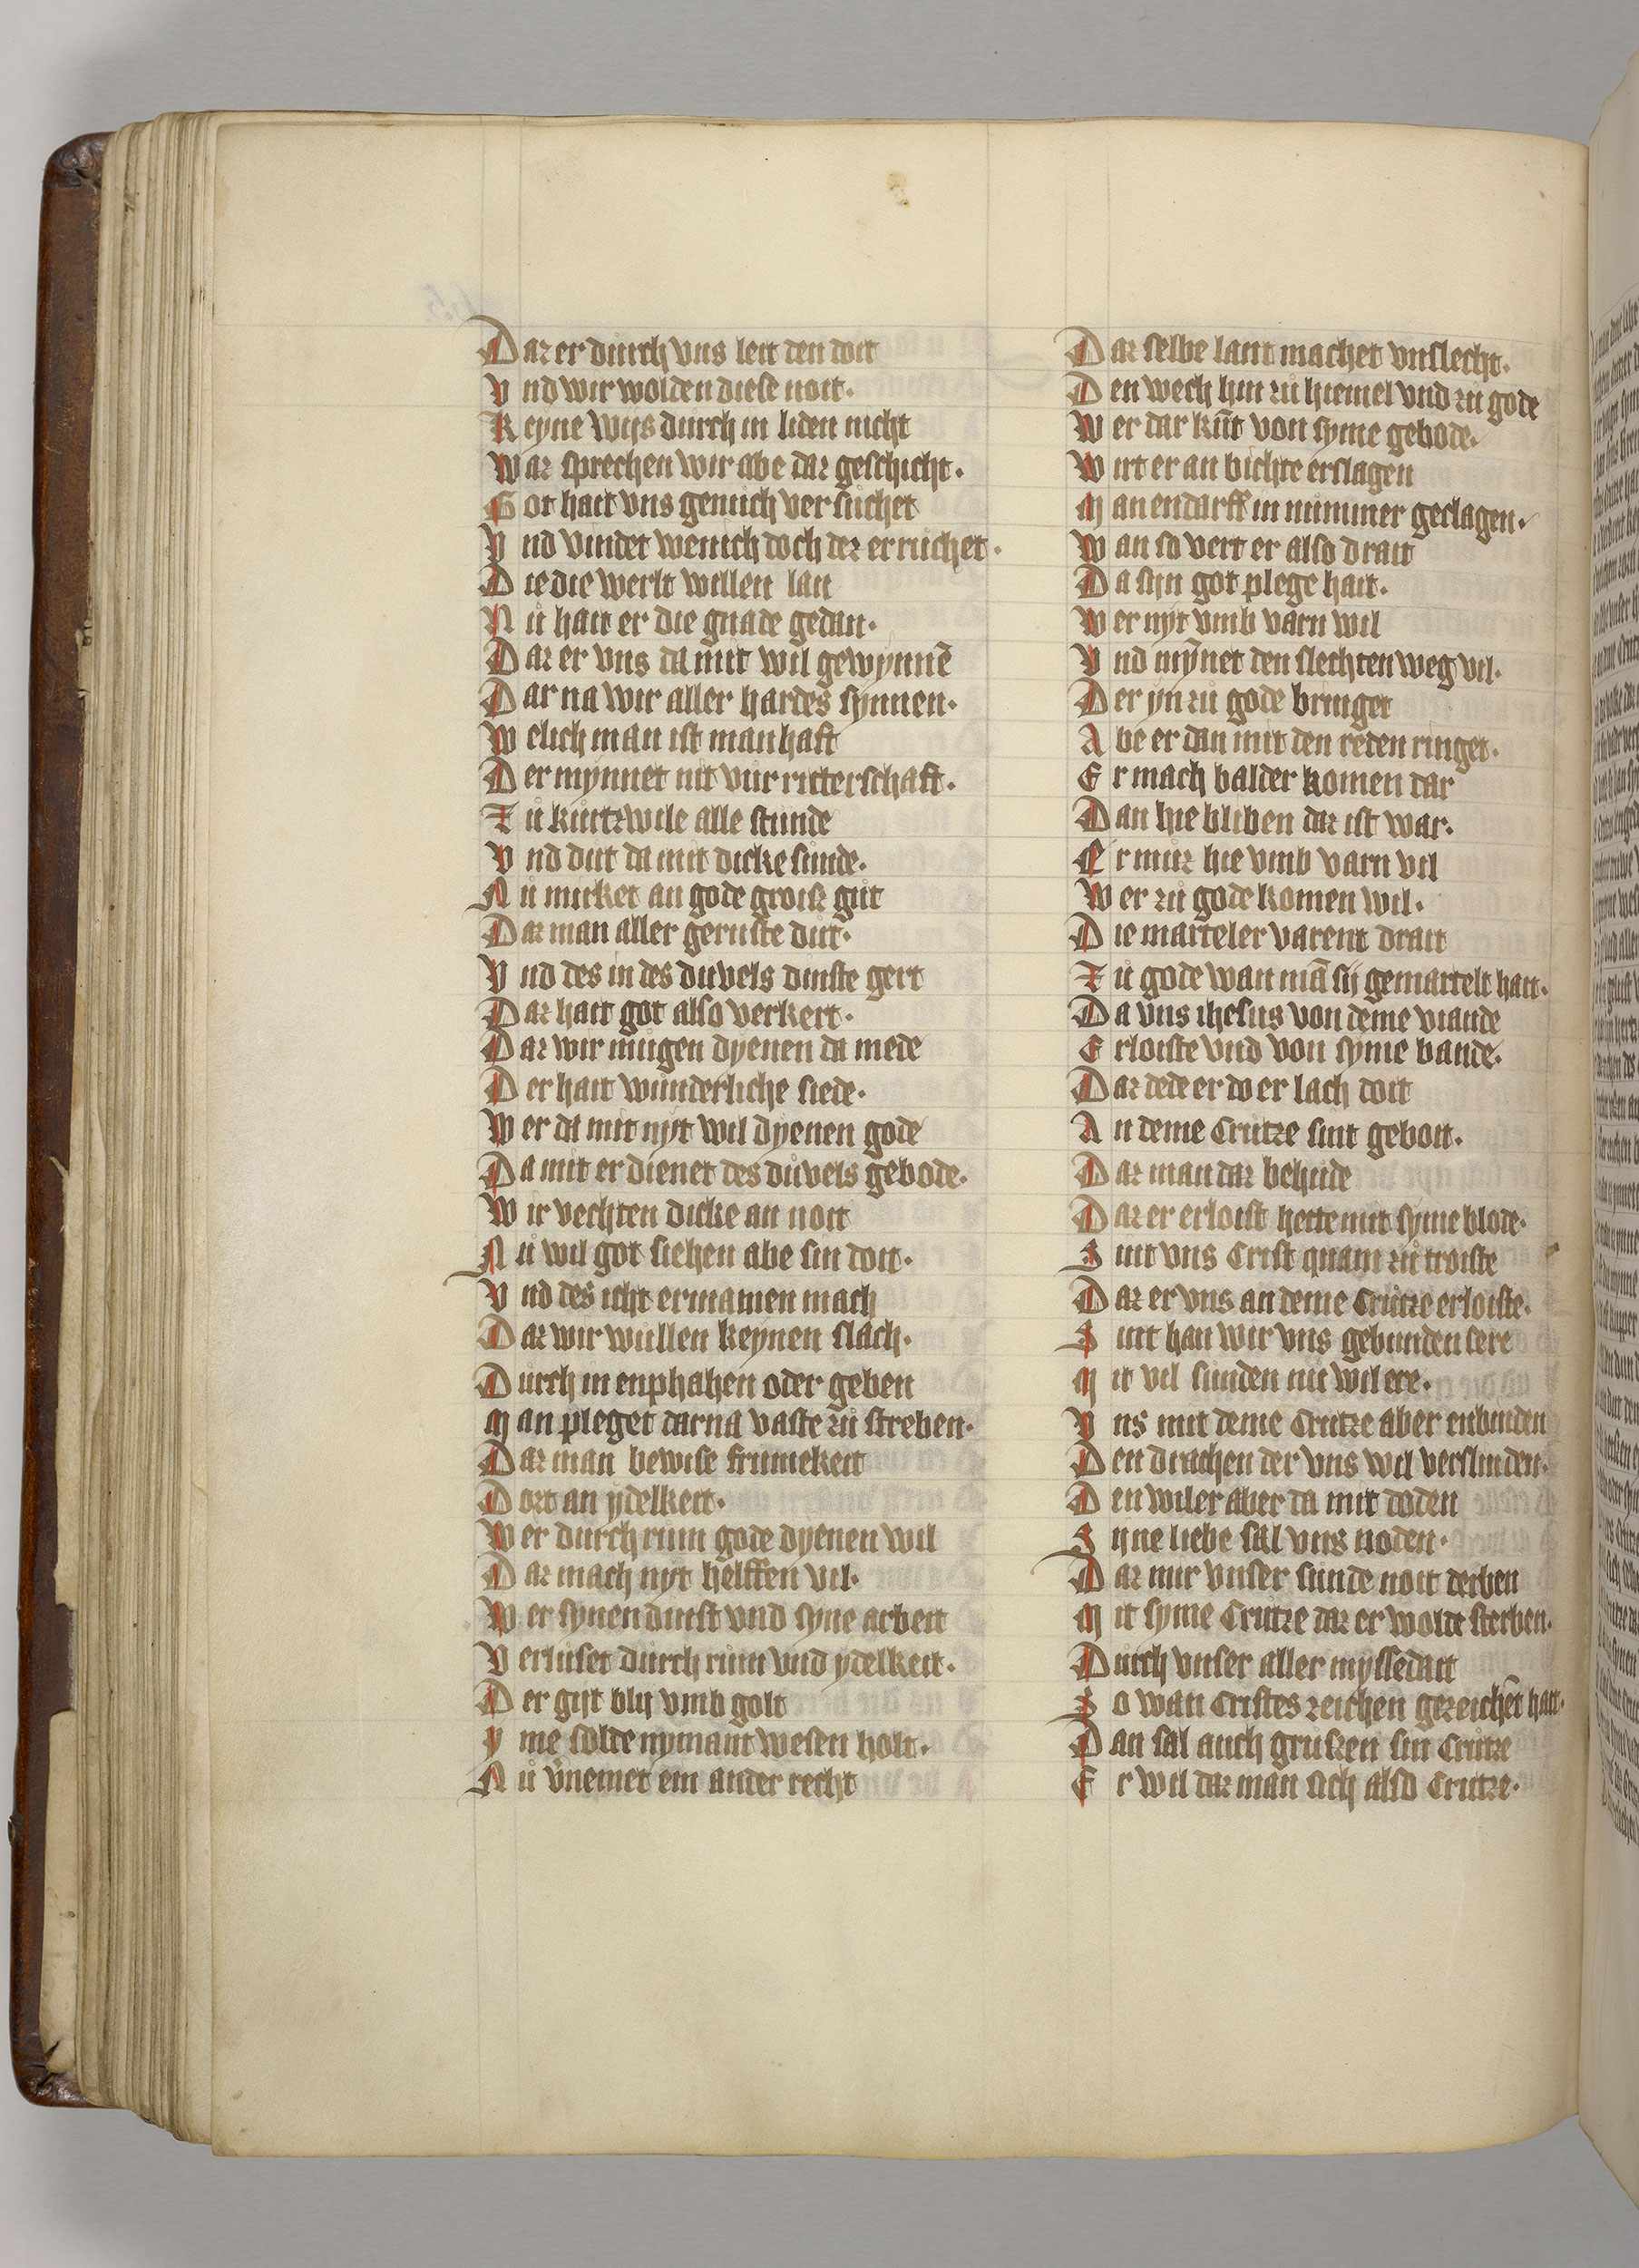 Daz er durch vns leit den doit
Vnd wir wolden diese noit.
Keyne wijs durch in liden nicht
Waz sprechen wir abe daz geschicht.
Got hait vns genuch versuchet
Vnd vindet wenich doch der er ruchet.
Die die werlt willen lan
Nu hait er die gnade gedan.
Daz er vns da mit wil gewynnē
Dar na wir aller hardes synnen.
Welich man ist manhaft
Der mynnet nit vur ritterschaft.
Zu kurtzwile alle stunde
Vnd dut da mit dicke sunde.
Nu mirket an gode groiß gut
Daz man aller gernste dut.
Vnd des in des duvels dinste gert
Daz hait got also verkert.
Daz wir mugen dyenen da mede
Der hait wunderliche siede.
Wer da mit nyt wil dyenen gode
Da mit er dienet des duvels gebode.
Wir vechten dicke an noit
Nu wil got siehen abe sin doit.
Vnd des icht ermanen mach
Daz wir wullen keynen slach.
Durch in enphahen oder geben
Man pleget darna vaste zu streben.
Daz man bewise frumekeit
Dort an ydelkeit.
Wer durch rum gode dyenen wil
Daz mach nyt helffen vil.
Wer synen dinst vnd syne arbeit
Verluset durch rum vnd ydelkeit.
Der gijt blij vmb golt
Yme solde nymant wesen holt.
Nu v̄nemet ein ander recht
Daz selbe lant machet vnslecht.
Den wech hin zu hiemel vnd zu gode
Wer dar kūt von syme gebode.
Wirt er an bichte erslagen
Man endarff in nummer geclagen.
Wan so vert er also drait
Da sijn got plege hait.
Wer nyt vmb varn wil
Vnd mȳnet den slechten weg vil.
Der yn zu gode bringet
Abe er dan mit den reden ringet.
Er mach balder komen dar
Dan hie bliben daz ist war.
Er muz hie vmb varn vil
Wer zu gode komen wil.
Die marteler varent drait
Zu gode wan mā sij gemartelt hait.
Da vns ihesus von deme viande
Erloiste vnd von syme bande.
Daz dede er do er lach doit
An deme Crutze sint gebott.
Daz man daz behude
Daz er erloist hette mit syme blode.
Sint vns Crist quam zu troiste
Daz er vns an deme Crutze erloiste.
Sint han wir vns gebunden sere
Mit vil sunden nu wil ere.
Vns mit deme Crutze aber enbinden
Den drachen der vns wil verslinden.
Den wil er aber da mit doden
Syne liebe sal vns noden.
Daz mir vnser sunde noit derben
Mit syme Crutze daz er wolde sterben.
Durch vnser aller myssedait
So wan Cristes zeichen gezeichēt hait.
Dan sal auch grußen sin Crutze
Er wil daz man sich also Crutze.